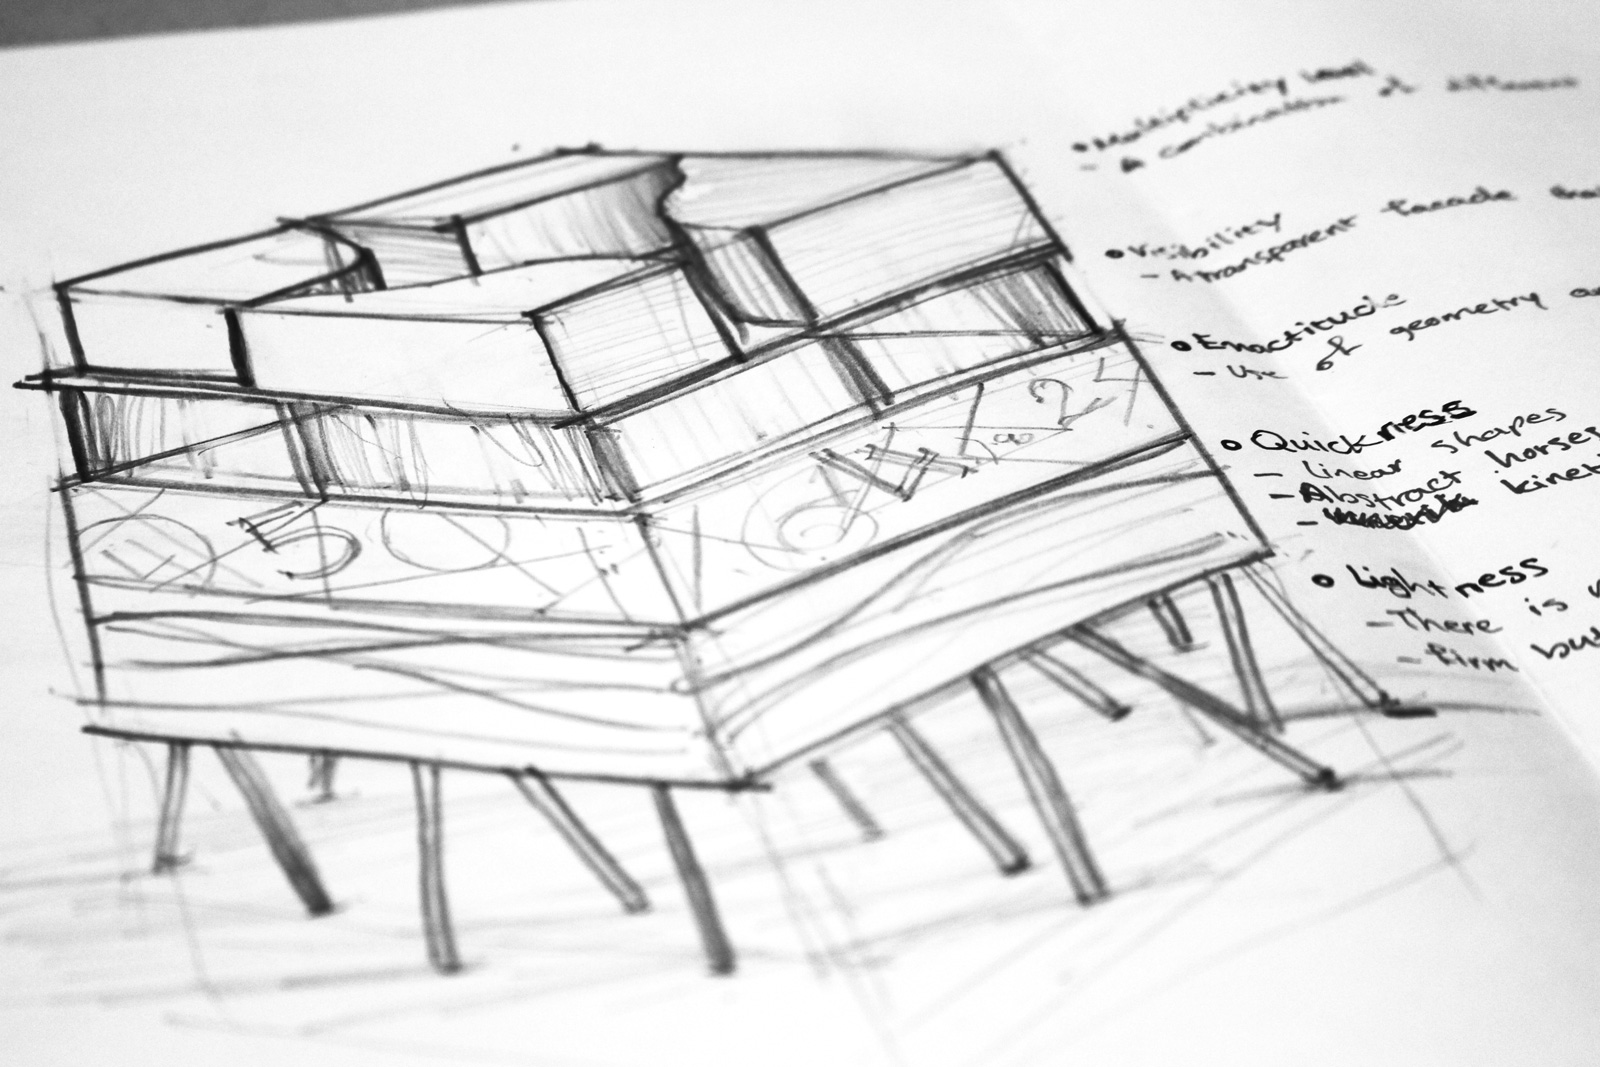 50
24
• Multiplicity Level
- A combination of different
• Visibility
- A transparent facade that
• Exactitude
- Use of geometry
• Quickness
- Linear shapes
- Abstract horses
kineti
• Lightness
- There is
- firm but